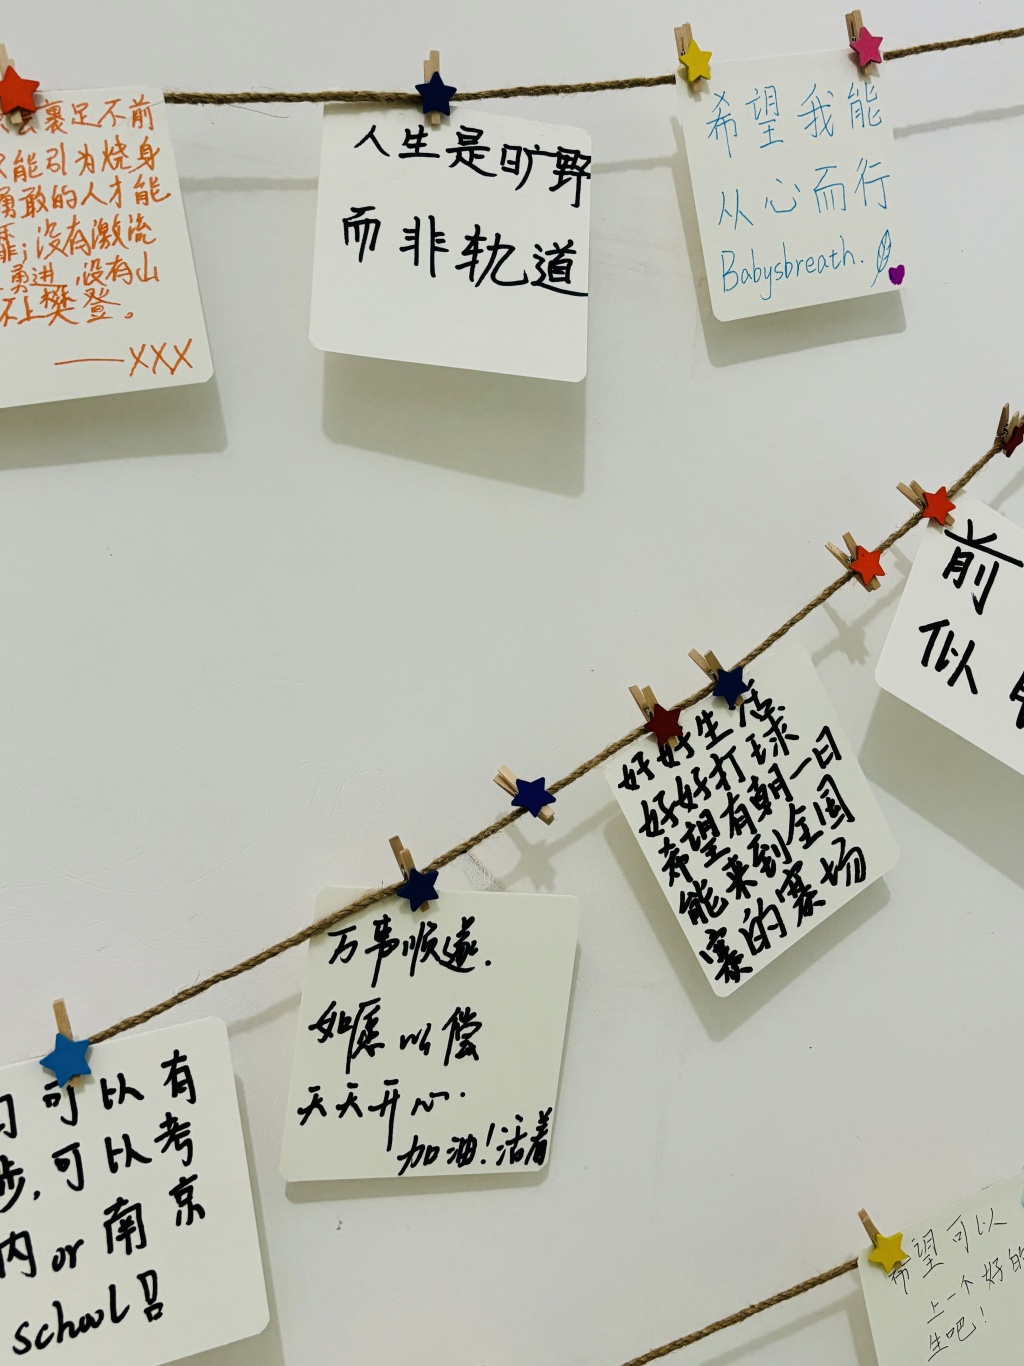 裹足不前
能引为烧身
勇敢的人才能
靡；没有激流
勇进，没有山
不上樊登。
——XXX
人生是旷野
而非轨道
希望我能
从心而行
Babysbreath.
前
似
好好生活
好好打球
希望有朝一日
能来到全国
赛的赛场
万事顺遂.
如愿以偿
天天开心.
加油！活着
可以有
步,可以考
内or南京
school!!
希望可以
上一个好的
生吧！